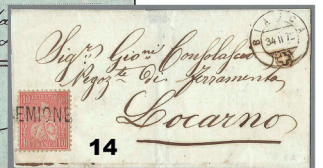 BIASCA
Sig.r Gio.ni Consolascio
Negoz.te di ferramenta
Locarno
SEMIONE
14